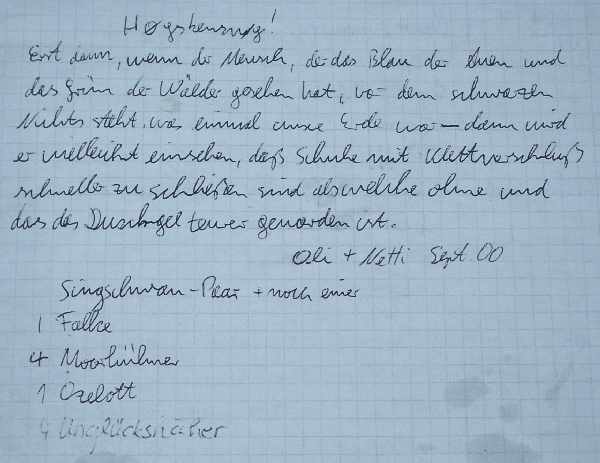 Erst dann, wenn der Mensch, der das Blau der und
das Grün der Wälder gesehen hat, vor dem schwarzen
Nichts steht, was einmal unsre Erde war – dann wird
er vielleicht einsehen, daß Schuhe mit Klettverschluß
schneller zu schließen sind als welche ohne und
das das Duschgel teurer geworden ist.
Oli + Netti Sept. 00
Singschwan-Paar + noch einer
1 Falke
4 Moorhühner
1 Ozelott
4 Unglückshäher